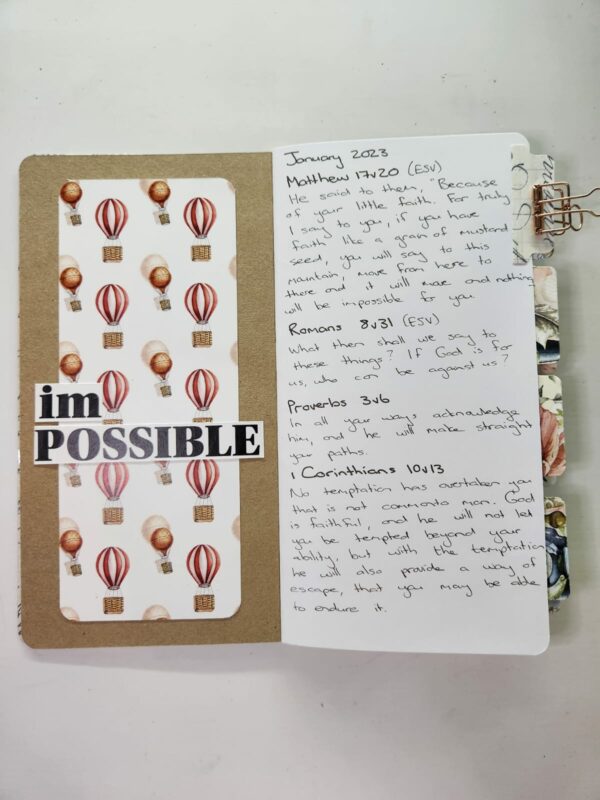 im
POSSIBLE
January 2023
Matthew 17v20 (ESV)
He said to them, "Because
of your little faith. For truly
I say to you, if you have
faith like a grain of mustard
seed, you will say to this
mountain, move from here to
there and it will move and nothing
will be impossible for you
Romans 8v31 (ESV)
What then shall we say to
these things? If God is for
us, who can be against us?
Proverbs 3v6
In all your ways acknowledge
him, and he will make straight
your paths.
1 Corinthians 10v13
No temptation has overtaken you
that is not common to man. God
is faithful, and he will not let
you be tempted beyond your
ability, but with the temptation
he will also provide a way of
escape, that you may be able
to endure it.